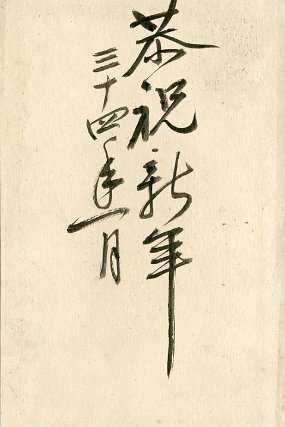 恭祝新年
三十四年一月